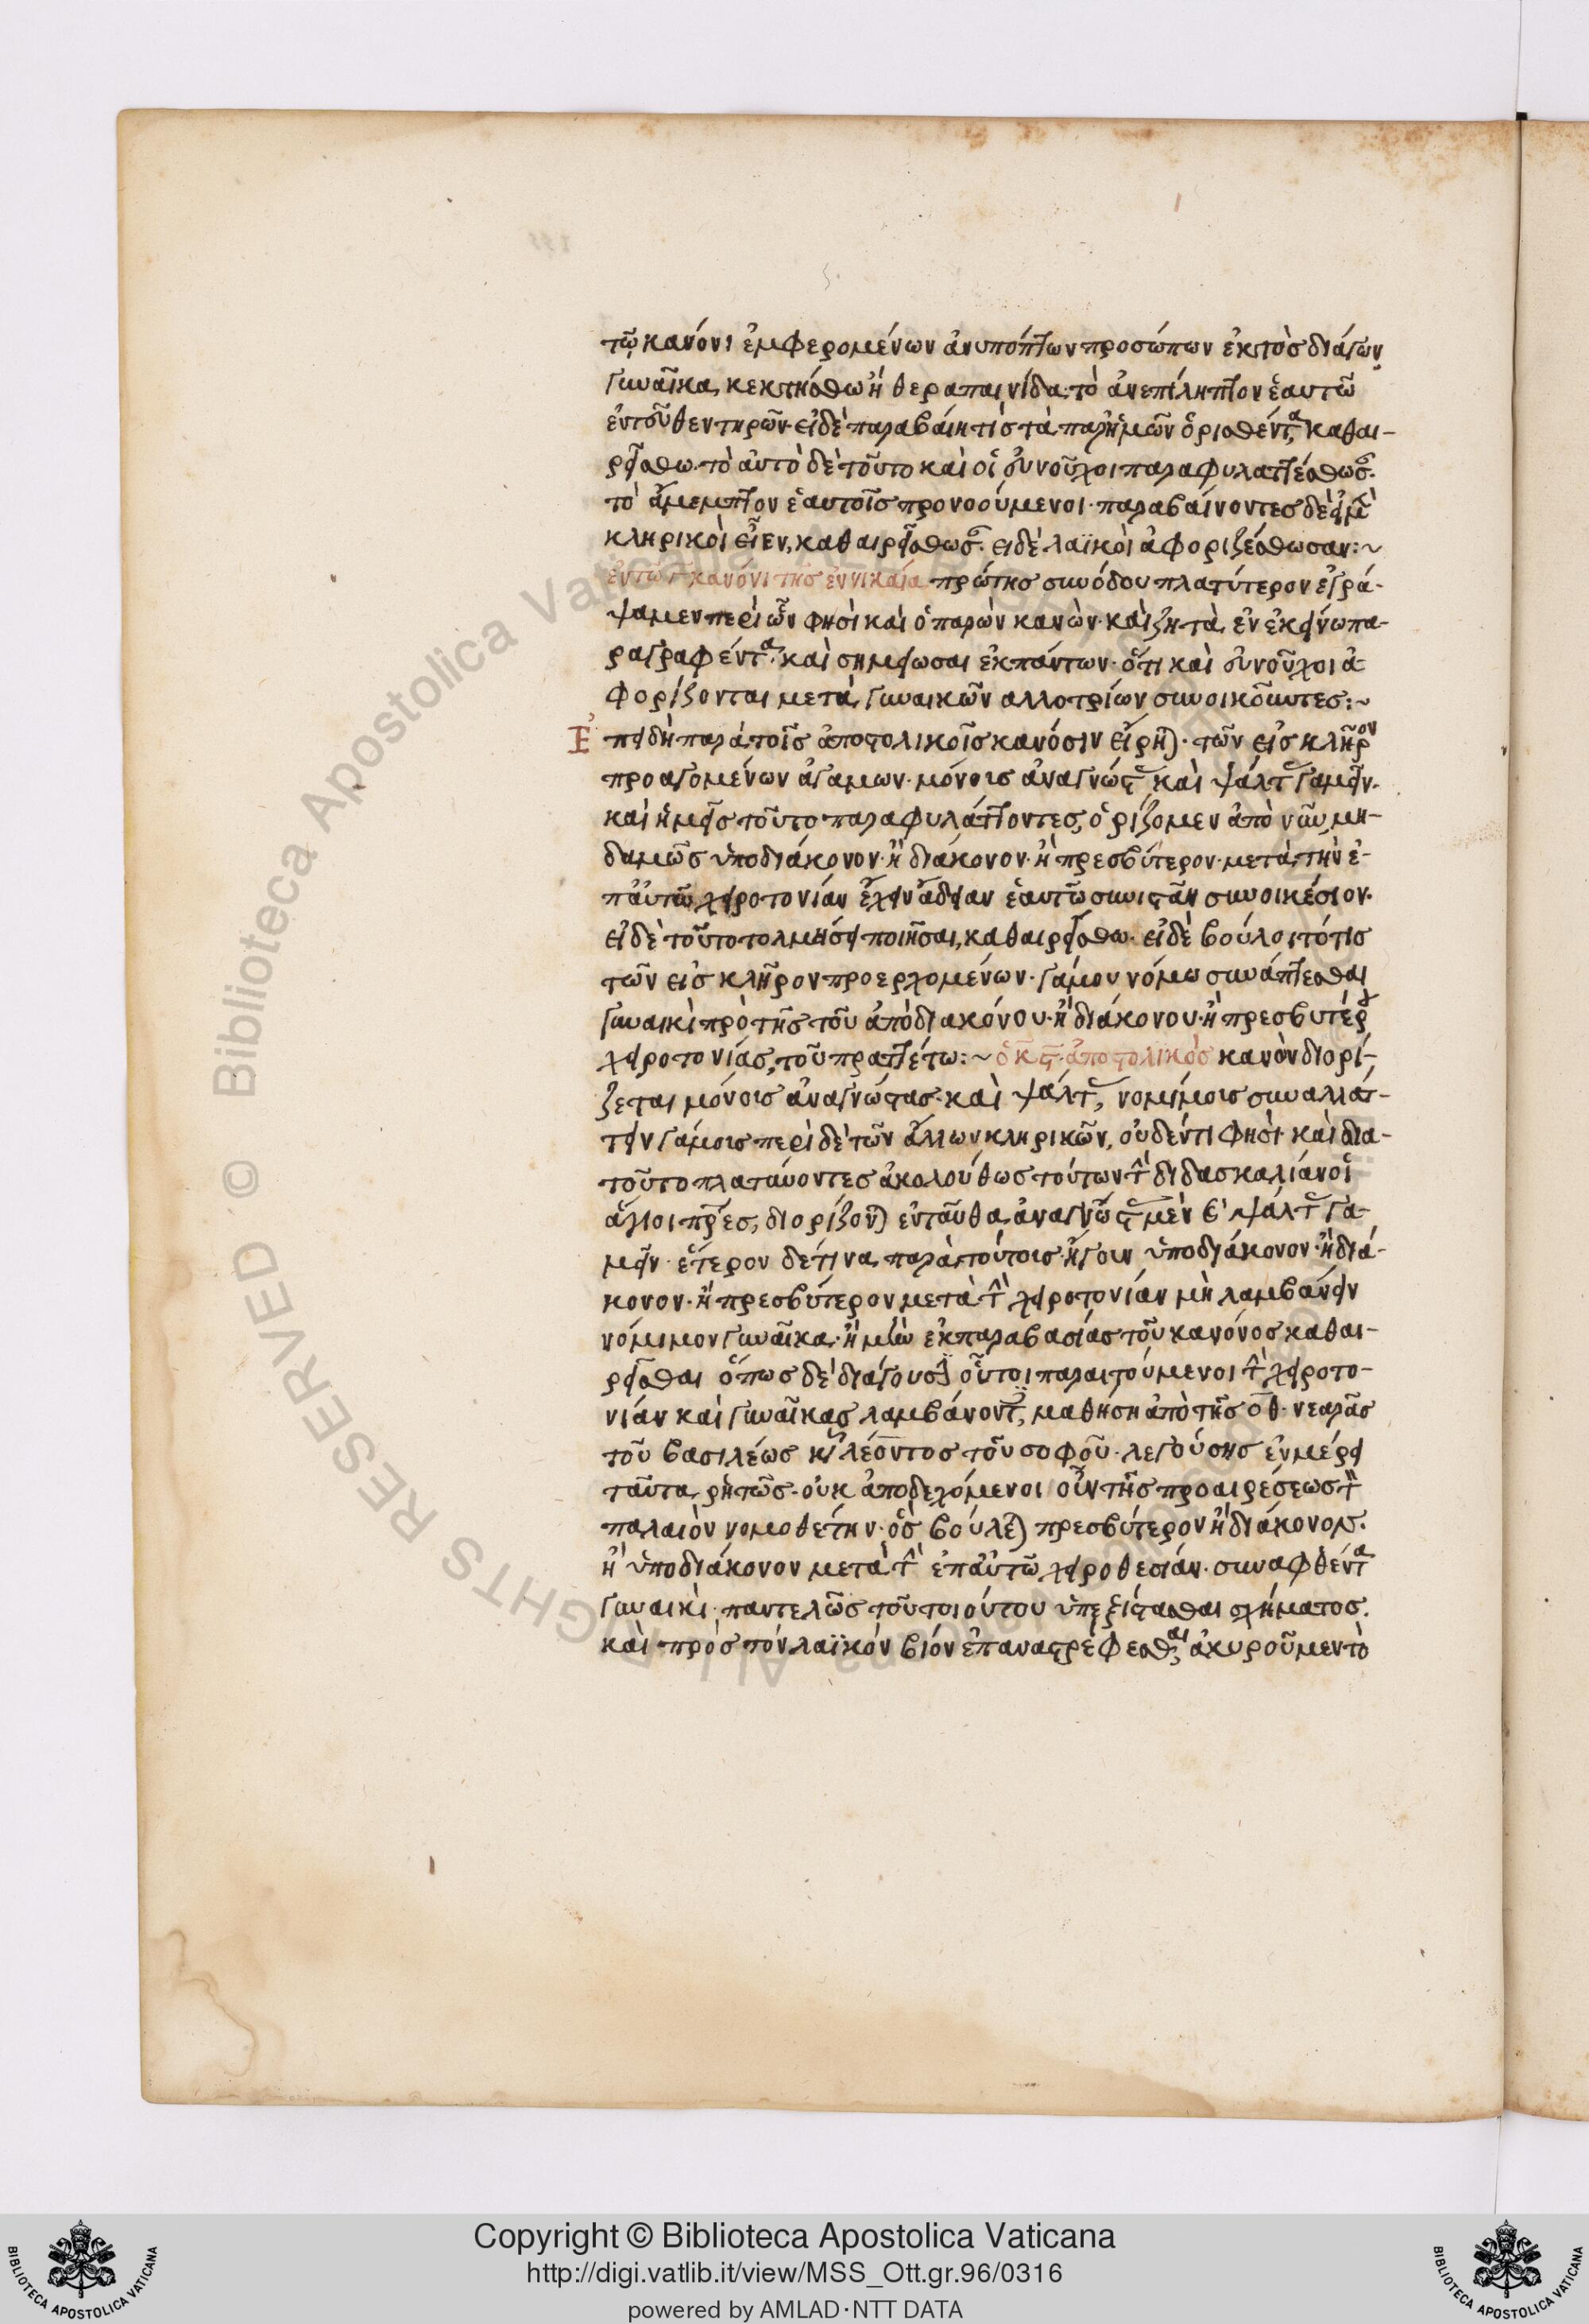 τῷ κανόνι ἐμφερομένων ἀνυπόπτων προσώπων ἐκτὸς διάγων
γυναῖκα κεκτήσθω ἢ θεραπαινίδα· τὸ ἀνεπίληπτον ἑαυτῶ
ἐντεῦθεν τηρῶν· εἰ δὲ παραβαίη τίς τὰ παρ' ἡμῶν ὁρισθέντα, καθαι-
ρείσθω. τὸ αὐτὸ δὲ τοῦτο καὶ οἱ εὐνοῦχοι παραφυλαττέσθωσ.
τὸ ἄμεμπτον ἑαυτοῖς προνοούμενοι· παραβαίνοντες δὲ εἰ μὲ
κληρικοὶ εἶεν, καθαιρείσθωσ. ει δὲ λαϊκοὶ ἀφοριζέσθωσαν:~
ἐν τῶ γ κανόνι τῆς ἐν νικαία πρώτης συνόδου πλατύτερον ἐγρά-
ψαμεν περὶ ὧν φησὶ καὶ ὁ παρὼν κανὼν· καὶ ζήτα ἐν ἐκείνω πα-
ραγραφέντα· καὶ σημείωσαι ἐκ πάντων· ὅτι καὶ εὐνοῦχοι ἀ-
φορίζονται μετὰ γυναικῶν αλλοτρίων συνοικοῦντες:~
Ἐπειδὴ παρὰ τοῖς ἀποστολικοῖς κανόσιν εἴρη). τῶν εἰς κλῆρον
προαγομένων ἀγάμων· μόνοις ἀναγνώστ καὶ ψάλτ γαμεῖν.
καὶ ἡμεῖς τοῦτο παραφυλάττοντες, ὁρίζομεν ἀπὸ νῦν μη-
δαμῶς ὑποδιάκονον· ἢ διάκονον· ἢ πρεσβύτερον· μετὰ τὴν ἐ-
π' αὐτῶ χειροτονίαν ἔχειν ἄδειαν ἑαυτῶ συνιστᾶν συνοικέσιον.
εἰ δὲ τοῦτο τολμήσει ποιῆσαι, καθαιρείσθω· εἰ δὲ βούλοιτό τις
τῶν εἰς κλῆρον προερχομένων· γάμου νόμω συνάπτεσθαι
γυναικὶ πρὸ τῆς τοῦ ἀποδιακόνου· ἢ διάκονου· ἢ πρεσβυτέρ
χειροτονίας, τοῦ πραττέτω:~ ὁ κϛ· ἀποστολικὸς κανὼν διορί-
ζεται μόνοις ἀναγνώστας· καὶ ψάλτ, νομίμοις συναλλάτ-
τειν γάμοις περὶ δὲ τῶν ἄλλων κληρικῶν, οὐδέν τι φησί· καὶ δια-
τοῦτο πλατύνοντες ἀκολούθως τούτων τ διδασκαλίαν οἱ
ἅγιοι πρες, διορίζον) ἐνταῦθα ἀναγνώστ μὲν ϗ ψάλτ γα-
μεῖν· ἕτερον δέ τινα παρὰ τούτοις· ἤγουν ὑποδιάκονον· ἢ διά-
κονον· ἢ πρεσβύτερον μετὰ τ χειροτονίαν μὴ λαμβάνειν
νόμιμον γυναῖκα· ἢ μὴν ἐκ παραβασίας τοῦ κανόνος καθαι-
ρεῖσθαι ὅπως δὲ διάγουσ οὗτοι παραιτούμενοι τ χειροτο-
νίαν καὶ γυναῖκας λαμβάνοντ, μαθήση ἀπὸ τῆς οθ· νεαρᾶς
τοῦ βασιλέως κυ λέοντος τοῦ σοφοῦ· λεγούσης ἐν μέρει
ταῦτα ῥητῶς· οὐκ ἀποδεχόμενοι οὖν τῆς προαιρέσεως τ
παλαιὸν νομοθέτην· ὃς βούλε) πρεσβύτερον ἢ διάκονον.
ἢ ὑποδιάκονον μετὰ τ ἐπ' αὐτῶ χειροθεσίαν· συναφθέντα
γυναικὶ παντελῶς τοῦ τοιούτου ὑπεξίστασθαι σχήματος.
καὶ πρὸς τὸν λαϊκόν βίον ἐπαναστρέφεσθαι, ἀκυροῦμεν τὸ
Copyright © Biblioteca Apostolica Vaticana
http://digi.vatlib.it/view/MSS_Ott.gr.96/0316
powered by AMLAD·NTT DATA